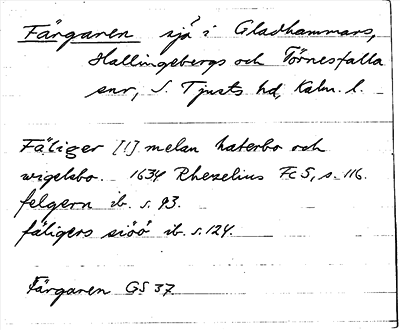 Färgaren sjö i Gladhammars,
Hallingebergs och Törnesfalla
snr, S. Tjusts hd, Kalm. l.
Fäliger [!] melan haterbo och
wigelsbo. 1634 Rhezelius Fc 5, s. 116.
felgern ib. s. 93.
fäligers siöö ib. s. 124.
Färgaren GS 37